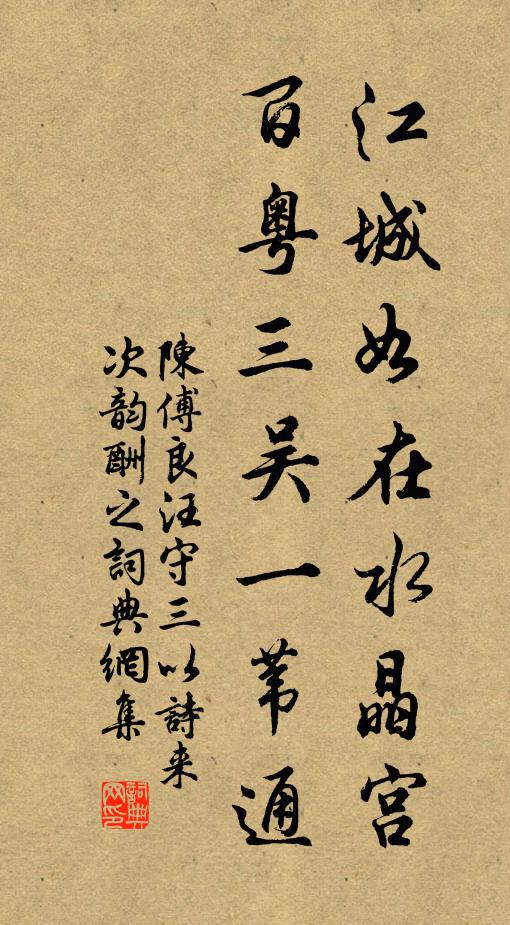 江城如在水晶宫
百粤三吴一苇通
陳傅良汪守三以詩来
次韵酬之詞典網集
詞典网印